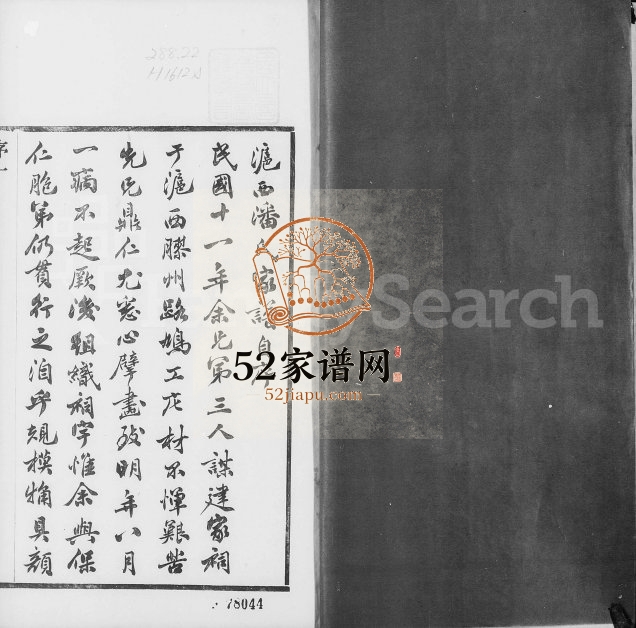 288.22
H1612A
滬西潘氏家譜自序
民國十一年余兄弟三人謀建家祠
于滬西膠州路鳩工庀材不憚艱苦
先兄鼎仁尤悉心擘畫致明年八月
一病不起厥後組織祠宇惟余與保
仁胞弟仍貫行之洎乎規模犕具顏
序一
78044
Search
52家谱网
52jiapu.com